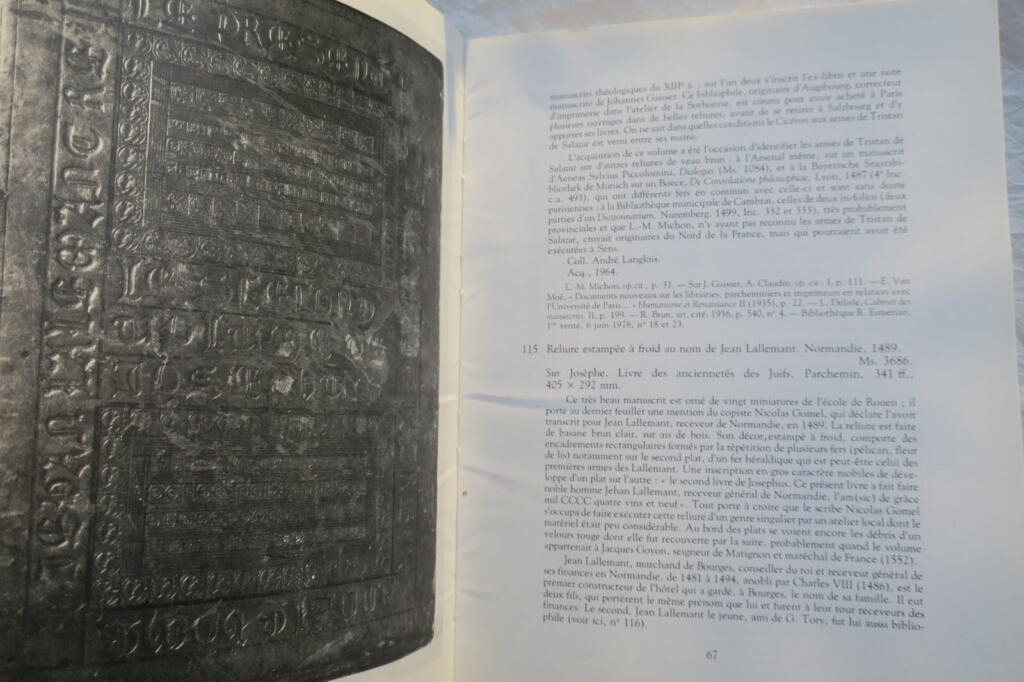 LE PRESENT
manuscrits théologiques du XIIIᵉ s. ; sur l'un deux s'inscrit l'ex-libris et une note
manuscrite de Johannes Gaisser. Ce bibliophile, originaire d'Augsbourg, correcteur
d'imprimerie dans l'atelier de la Sorbonne, est connu pour avoir acheté à Paris
plusieurs ouvrages dans de belles reliures, avant de se retirer à Salzbourg et d'y
apporter ses livres. On ne sait dans quelles conditions le Cicéron aux armes de Tristan
de Salazar est venu entre ses mains.
L'acquisition de ce volume a été l'occasion d'identifier les armes de Tristan de
Salazar sur d'autres reliures de veau brun : à l'Arsenal même, sur un manuscrit
d'Aeneas Sylvius Piccolomini, Dialogus (Ms. 1084), et à la Bayerische Staatsbi-
bliothek de Munich sur un Boèce, De Consolatione philosophiae, Lyon, 1487 (4° Inc.
c.a. 493), qui ont différents fers en commun avec celle-ci et sont sans doute
parisiennes ; à la Bibliothèque municipale de Cambrai, celles de deux in-folios (deux
parties d'un Dictionnarium, Nuremberg, 1499, Inc. 332 et 333), très probablement
provinciales et que L.-M. Michon, n'y ayant pas reconnu les armes de Tristan de
Salazar, croyait originaires du Nord de la France, mais qui pourraient avoir été
exécutées à Sens.
Coll. André Langlois.
Acq., 1964.
L.-M. Michon, op.cit., p. 31. — Sur J. Gaisser, A. Claudin, op. cit., I, p. 111. — E. Van
Moé, « Documents nouveaux sur les libraires, parcheminiers et imprimeurs en relation avec
l'Université de Paris... » Humanisme et Renaissance II (1935), p. 22. — L. Delisle, Cabinet des
manuscrits, II, p. 199. — R. Brun, art. cité, 1936, p. 540, n° 4. — Bibliothèque R. Esmerian,
1ʳᵉ vente, 6 juin 1978, n° 18 et 23.
115 Reliure estampée à froid au nom de Jean Lallemant. Normandie, 1489.
Ms. 3686.
Sur Josèphe. Livre des anciennetés des Juifs. Parchemin, 341 ff.,
405 × 292 mm.
Ce très beau manuscrit est orné de vingt miniatures de l'école de Rouen ; il
porte au dernier feuillet une mention du copiste Nicolas Gomel, qui déclare l'avoir
transcrit pour Jean Lallemant, receveur de Normandie, en 1489. La reliure est faite
de basane brun clair, sur ais de bois. Son décor, estampé à froid, comporte des
encadrements rectangulaires formés par la répétition de plusieurs fers (pélican, fleur
de lis) notamment sur le second plat, d'un fer héraldique qui est peut-être celui des
premières armes des Lallemant. Une inscription en gros caractère mobiles de déve-
loppe d'un plat sur l'autre : « le second livre de Josephus. Ce présent livre a fait faire
noble homme Jehan Lallemant, receveur général de Normandie, l'am(sic) de grâce
mil CCCC quatre vins et neuf ». Tout porte à croire que le scribe Nicolas Gomel
s'occupa de faire exécuter cette reliure d'un genre singulier par un atelier local dont le
matériel était peu considérable. Au bord des plats se voient encore les débris d'un
velours rouge dont elle fut recouverte par la suite, probablement quand le volume
appartenait à Jacques Goyon, seigneur de Matignon et maréchal de France (1552).
Jean Lallemant, marchand de Bourges, conseiller du roi et receveur général de
ses finances en Normandie, de 1481 à 1494, anobli par Charles VIII (1486), est le
premier constructeur de l'hôtel qui a gardé, à Bourges, le nom de sa famille. Il eut
deux fils, qui portèrent le même prénom que lui et furent à leur tour receveurs des
finances. Le second, Jean Lallemant le jeune, ami de G. Tory, fut lui aussi biblio-
phile (voir ici, n° 116).
67